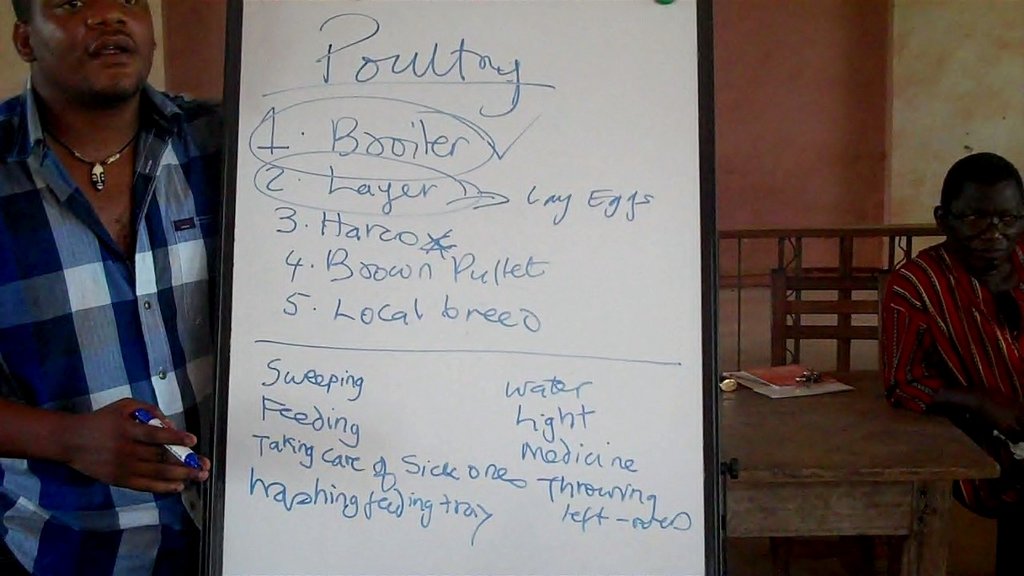 Poultry
1. Broiler ✓
2. Layer => Lay Eggs
3. Harco
4. Brown Pullet
5. Local breed
Sweeping
Feeding
Taking care of Sick ones
Washing feeding tray
Water
Light
Medicine
Throwing
left-overs